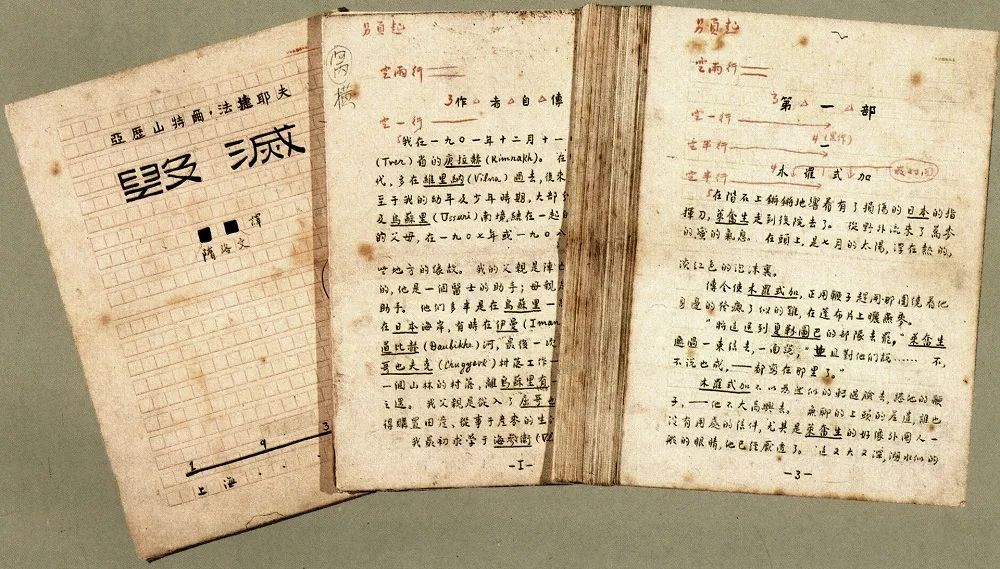 亞歷山特爾·法捷耶夫
毀滅
■■ 譯
隋洛文
1 9 3
上海
另頁起
空兩行
3作△者△自△傳
空一行
我在一九〇一年十二月十一
(Tver)省的庚拉赫(Kimrakh)。在
代,多在維里納(Vilna)過去,後來
至于我的幼年及少年時期,大部份
及烏蘇里(Ussuri)南境結在一起
的父母,在一九〇七年或一九〇八
些地方的緣故。我的父親是陣
的,他是一個醫士的助手;母親
助手。他們多半是在烏蘇里一
在日本海岸,有時在伊曼(Iman
過比赫(Daubikhe)河,最後一次
哥也夫克(Chuguevk)村落工作
一個山林的村落,離烏蘇里有
之遥。我父親是從入了屈哥也
得購置田產,從事于產麥的生
我最初求學于海參衛(Vl
-I-
另頁起
空兩行
3第△一△部
空一行
空半行
一
空半行
4木羅式加
在階石上鏘鏘地響着有了損傷的日本的指
揮刀,萊奮生走到後院去了。從野外流來了蕎麥
的蜜的氣息。在頭上,是七月的太陽,浮在熱的,
淡紅色的泡沫裏。
傳令使木羅式加,正用鞭子趕開那圍繞着他
身邊的發瘋了似的雞,在篷布片上曬燕麥。
"將這送到夏勒圖巴的部隊去罷,"萊奮生
遞過一束信去,一面說,"並且對他們說……不,
不說也成,——都寫在那里了。"
木羅式加不以爲然似的轉過臉去,捲他的鞭
子,——他不大高興去。無聊的上頭的差遣,誰也
沒有用處的信件,尤其是萊奮生的好像外國人一
般的眼睛,他已經厭透了。這又大又深,湖水似的
-3-